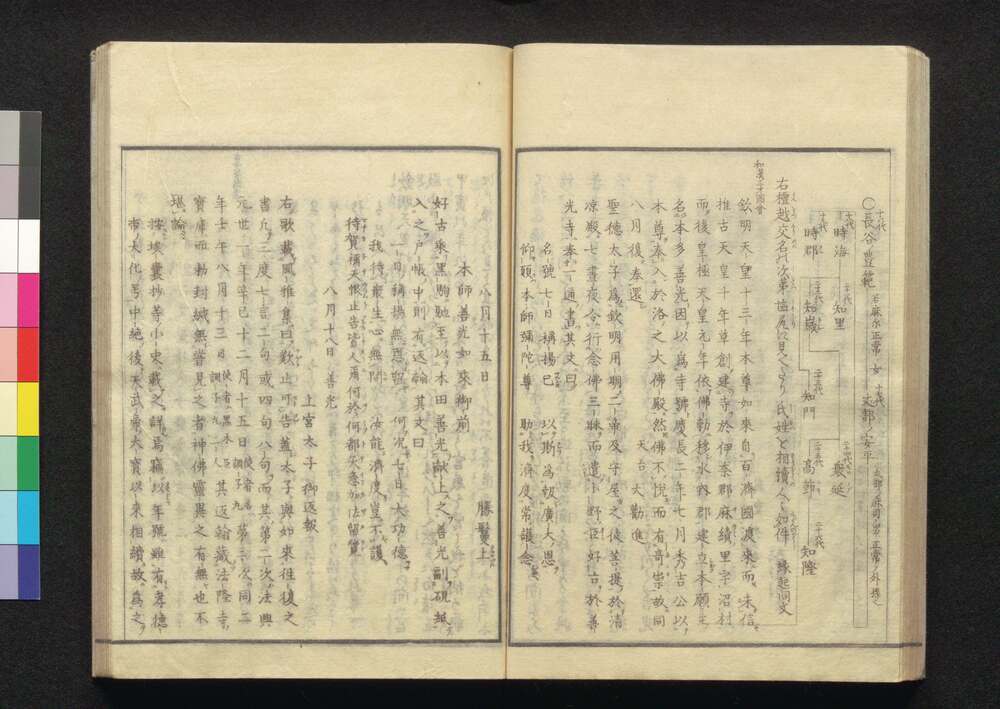 十八代
○長谷豊範
十九代
時海
二十代
知里
時郡
知嵗
知門
高節
知隆
右檀越交名ノ次第歯尻ニ見ヘタリ氏姓ヲ相續人々如件 縁起同文
和漢三才図會
欽明天皇十三年本尊如來自百濟國渡來而未信
推古天皇十年草創建寺於伊奈郡麻績里宇沼村
而後皇極天皇元年依佛勅移水内郡建立本願主
名本多善光因以為寺號慶長二年七月秀吉公以
本尊奉入於洛之大佛殿然佛不悦而有奇祟故同
八月後奉還 天台 大勸進
聖徳太子為欽明用明二帝及守屋之徒菩提於清
凉殿七晝夜令行念佛三昧而遣小野臣好古於善
光寺奉一通書其文曰
名號七日稱揚已 以斯為報廣大恩
仰願本師彌陀尊 助我濟度常護念
八月十五日 勝鬘上
本師善光如來御前
好古乘黑駒馳至以本田善光献上之善光副硯紙
入之戸帳中則有返翰其文曰
一日稱揚無恩留 何况七日大功德
我待衆生心無間 汝能濟度豈不護
待賀禰天恨止告皆人爾何於何都天急加佐留覽
八月十八日 善光
上宮太子御返報
右歌載風雅集曰歎止可告蓋太子與如來往復之
書九二度七言二句或四句八句而其第二次法興
元世一年辛巳十二月十五日 使者 調子丸 第三次同二
年壬午八月十三日 使者黑木臣 調子丸二人 其返翰藏法隆寺
寶庫而勅封緘無嘗見之者神佛靈異之有無也不
堪論
按埃囊抄等小史載之詳焉蓋以年號雖有孝德
帝大化号中絶後天武帝大寶以來相續故為之